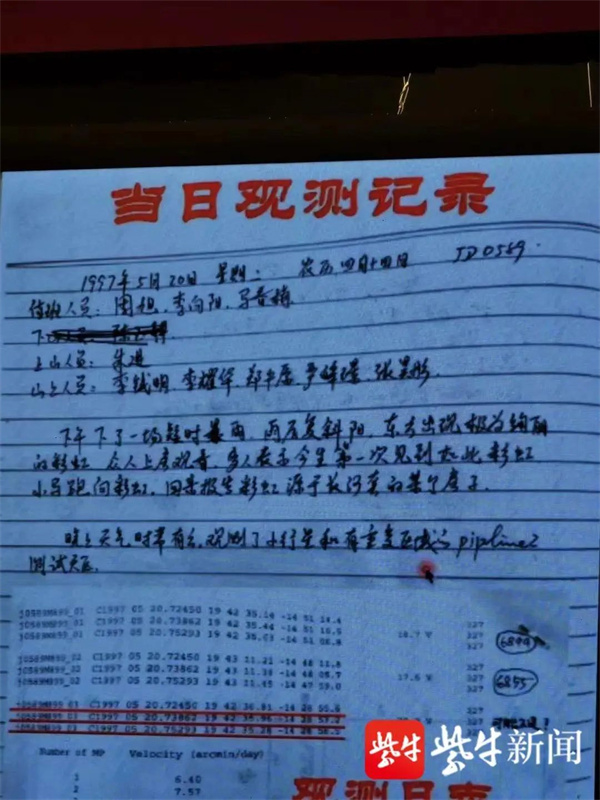 当日观测记录
1997年5月20日 星期: 农历四月十四日 JD0589
值班人员: 周旭, 李向阳, 马晋楠
上山人员: 朱进
山上人员: 李钱明, 李耀华, 郑
下午下了一场短时暴雨, 雨后复斜阳, 东方出现极为绚丽
的彩虹 众人上房观看, 多人表示今生第一次见到如此彩虹
小马跑向彩虹, 回来报告彩虹源于长河套的某个房子.
晚上天气时带有云, 观测了小行星和有重复区域的pipline2
测试天区.
j0589M899_01 C1997 05 20.72450 19 42 35.14 -14 51
j0589M899_01 C1997 05 20.73862 19 42 35.44 -14 51 327
j0589M899_01 C1997 05 20.75293 19 42 35.03 -14 51 18.7 V 327
6849
j0589M899_02 C1997 05 20.72450 19 43 11.21 -14 48 327
j0589M899_02 C1997 05 20.73862 19 43 11.38 -14 48 327
j0589M899_02 C1997 05 20.75293 19 43 11.45 -14 47 17.6 V 327
6855
j0589M899_03 C1997 05 20.72450 19 42 36.91 -14 28 327
j0589M899_03 C1997 05 20.73862 19 42 35.96 -14 28
j0589M899_03 C1997 05 20.75293 19 42 35.28 -14 28
Number of MP Velocity (arcmin/day)
1 6.40
2 7.57
观测日志
紫牛 紫牛新闻